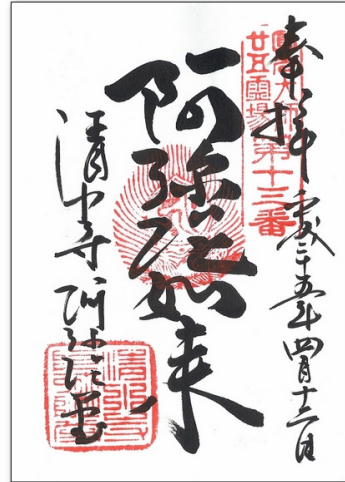 奉拝 平成二十五年四月十三日
圓光大師
廿五霊場第十三番
阿弥陀如来
清水寺 阿弥陀堂